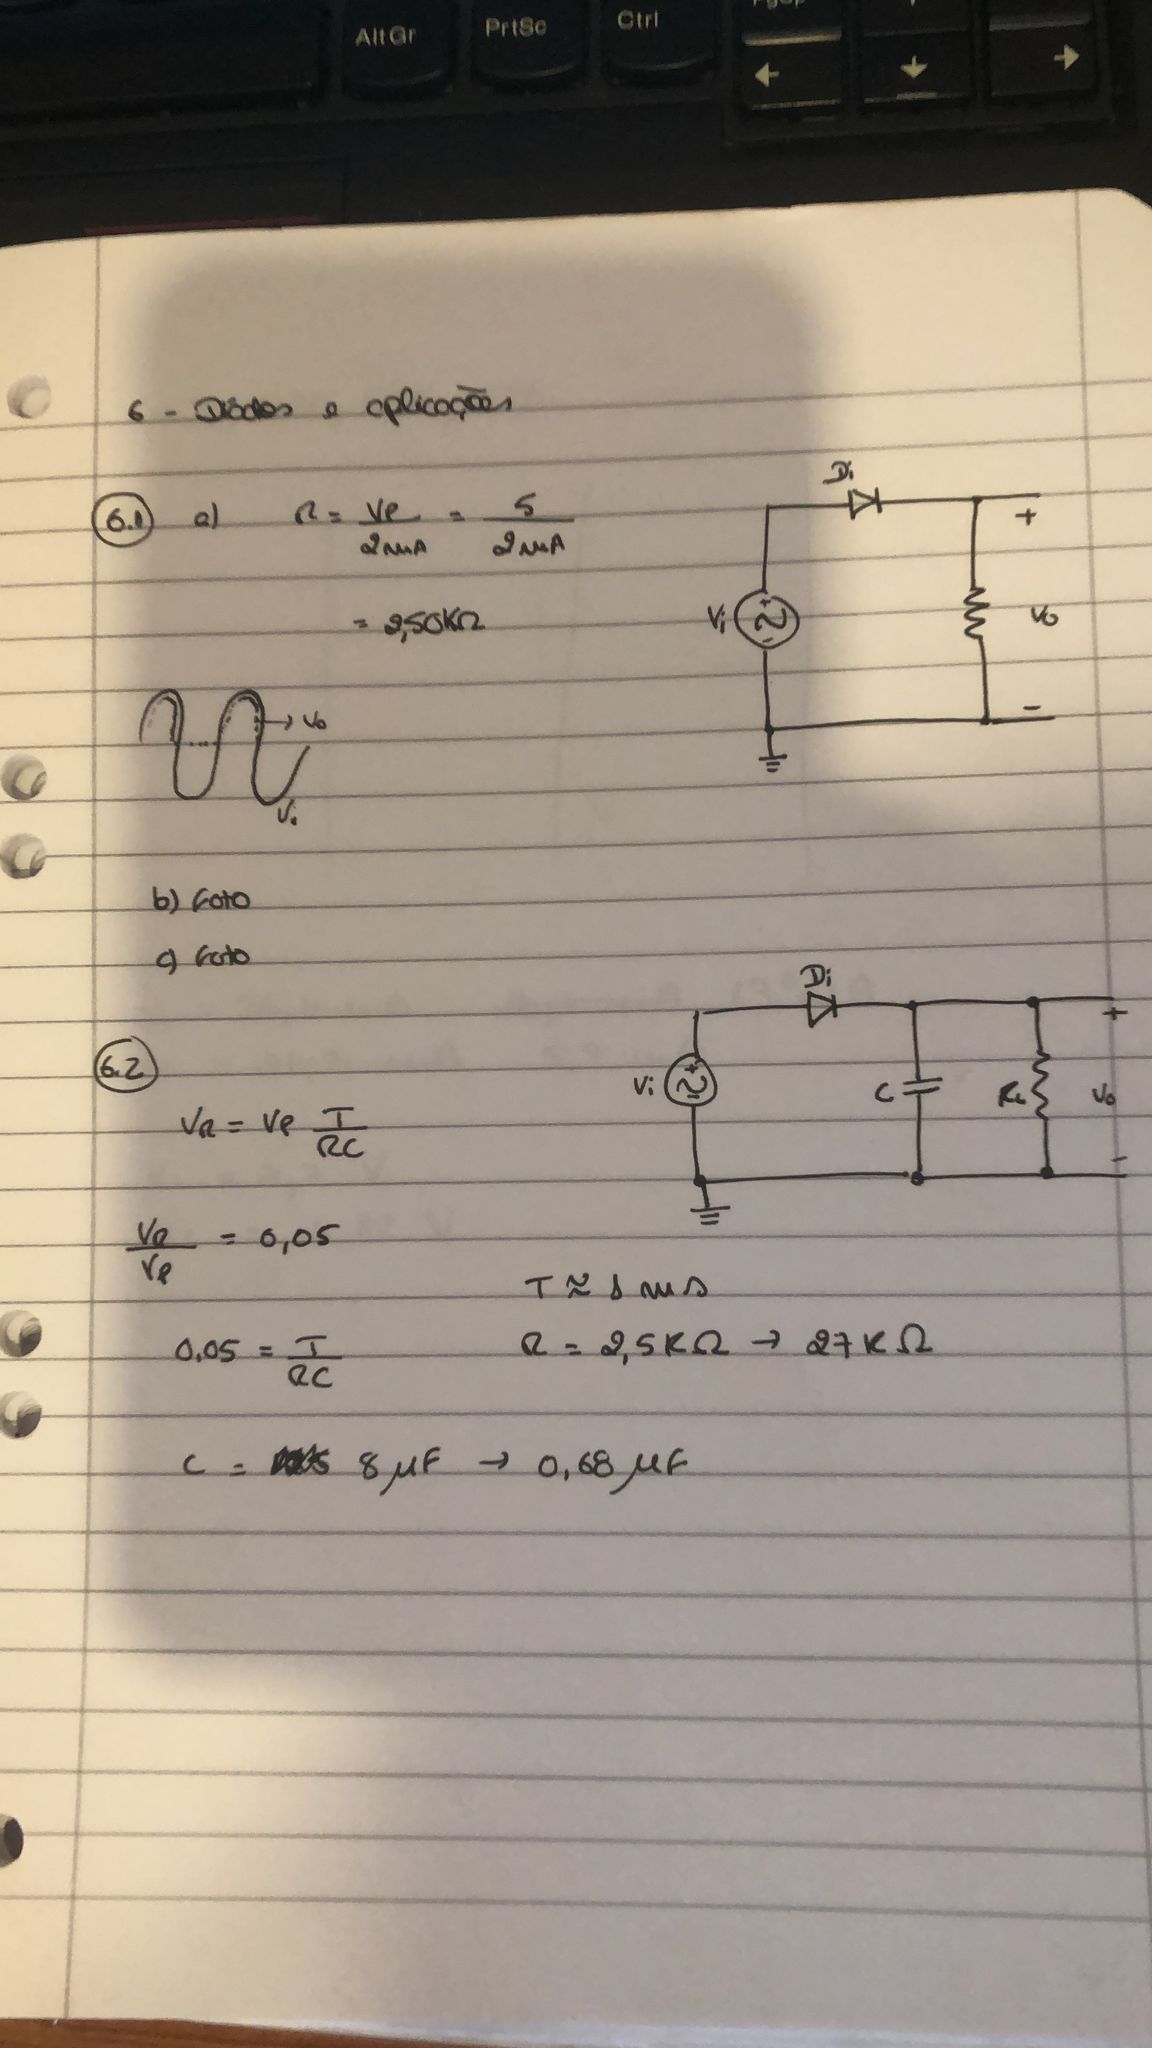 AltGr
PrtSc
Ctrl
PgUp
←
↓
→
6 - Díodos e aplicações
6.1 a) R = VP / 2mA = 5 / 2mA
= 2,50KΩ
Di
+
Vi
+
-
Vo
-
→ Vo
Vi
b) Foto
c) Foto
Di
+
6.2
Vi
+
C
RL
Vo
-
VR = VP T / RC
VR / VP = 0,05
T ≈ 1 ms
0,05 = T / RC
R = 2,5KΩ → 27KΩ
C = 8 μF → 0,68 μF